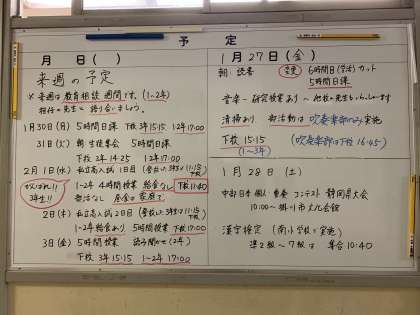 予 定
月 日( )
来週の予定
※来週は教育相談週間です。(1~2年)
担任の先生と語り合いましょう。
1月30日(月) 5時間日課 下校 3年15:15 1・2年17:00
31日(火) 朝 生徒集会 5時間日課
下校 3年14:25 1・2年17:00
2月1日(水) 私立高入試1日目
がんばれ!!
3年生!!
1・2年 4時間授業 給食なし
部活なし
2日(木) 私立高入試2日目
1・2年給食あり 5時間授業 下校17:00
3日(金) 5時間授業 読み聞かせ(2年)
下校 3年15:15 1~2年 17:00
1月27日(金)
朝 読書
変更 6時間目(学活)カット
5時間日課
音楽 研究授業あり
清掃あり 部活動は吹奏楽部のみ実施
下校 15:15 (吹奏楽部は下校16:45)
(1~3年)
1月28日(土)
中部日本個人重奏コンテスト静岡県大会
10:00~掛川市文化会館
漢字検定(南小学校で実施)
準2級~7級は 集合10:40